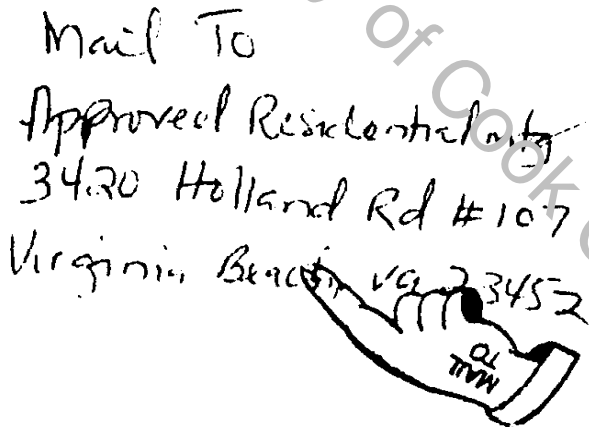 Mail To
Approved Residential mtg
3420 Holland Rd #107
Virginia Beach va 23452
MAIL
TO
of Cook